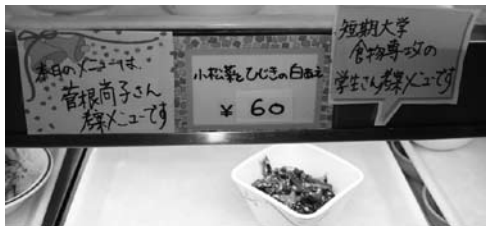 本日のメニューは、
菅根尚子さん
考案メニューです
小松菜とひじきの白あえ
¥ 60
短期大学
食物専攻の
学生さん考案メニューです